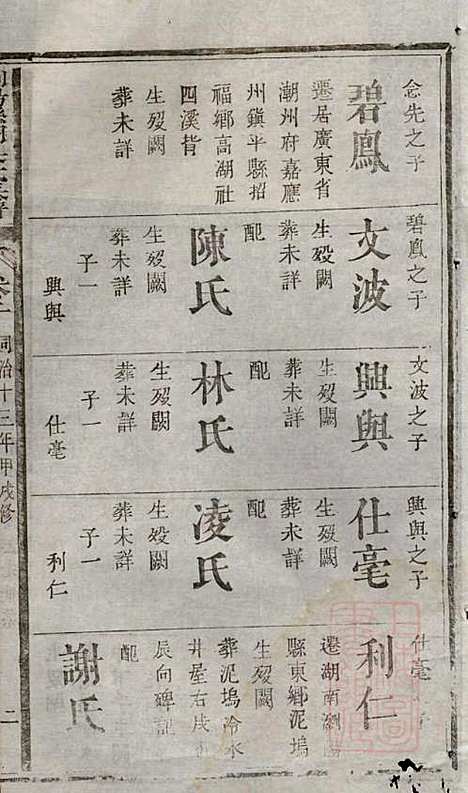 念先之子
碧鳳
遷居廣東省
潮州府嘉應
州鎮平縣招
福鄉高湖社
四溪背
生歿闕
葬未詳
碧鳳之子
文波
生歿闕
葬未詳
配
陳氏
生歿闕
葬未詳
子一
興與
文波之子
興與
生歿闕
葬未詳
配
林氏
生歿闕
葬未詳
子一
仕毫
興與之子
仕毫
生歿闕
葬未詳
配
凌氏
生歿闕
葬未詳
子一
利仁
仕毫
利仁
遷湖南瀏陽
縣東鄉泥塢
生歿闕
葬泥塢冷水
井屋右戌
辰向碑記
配
謝氏
同治十三年甲戌修
二